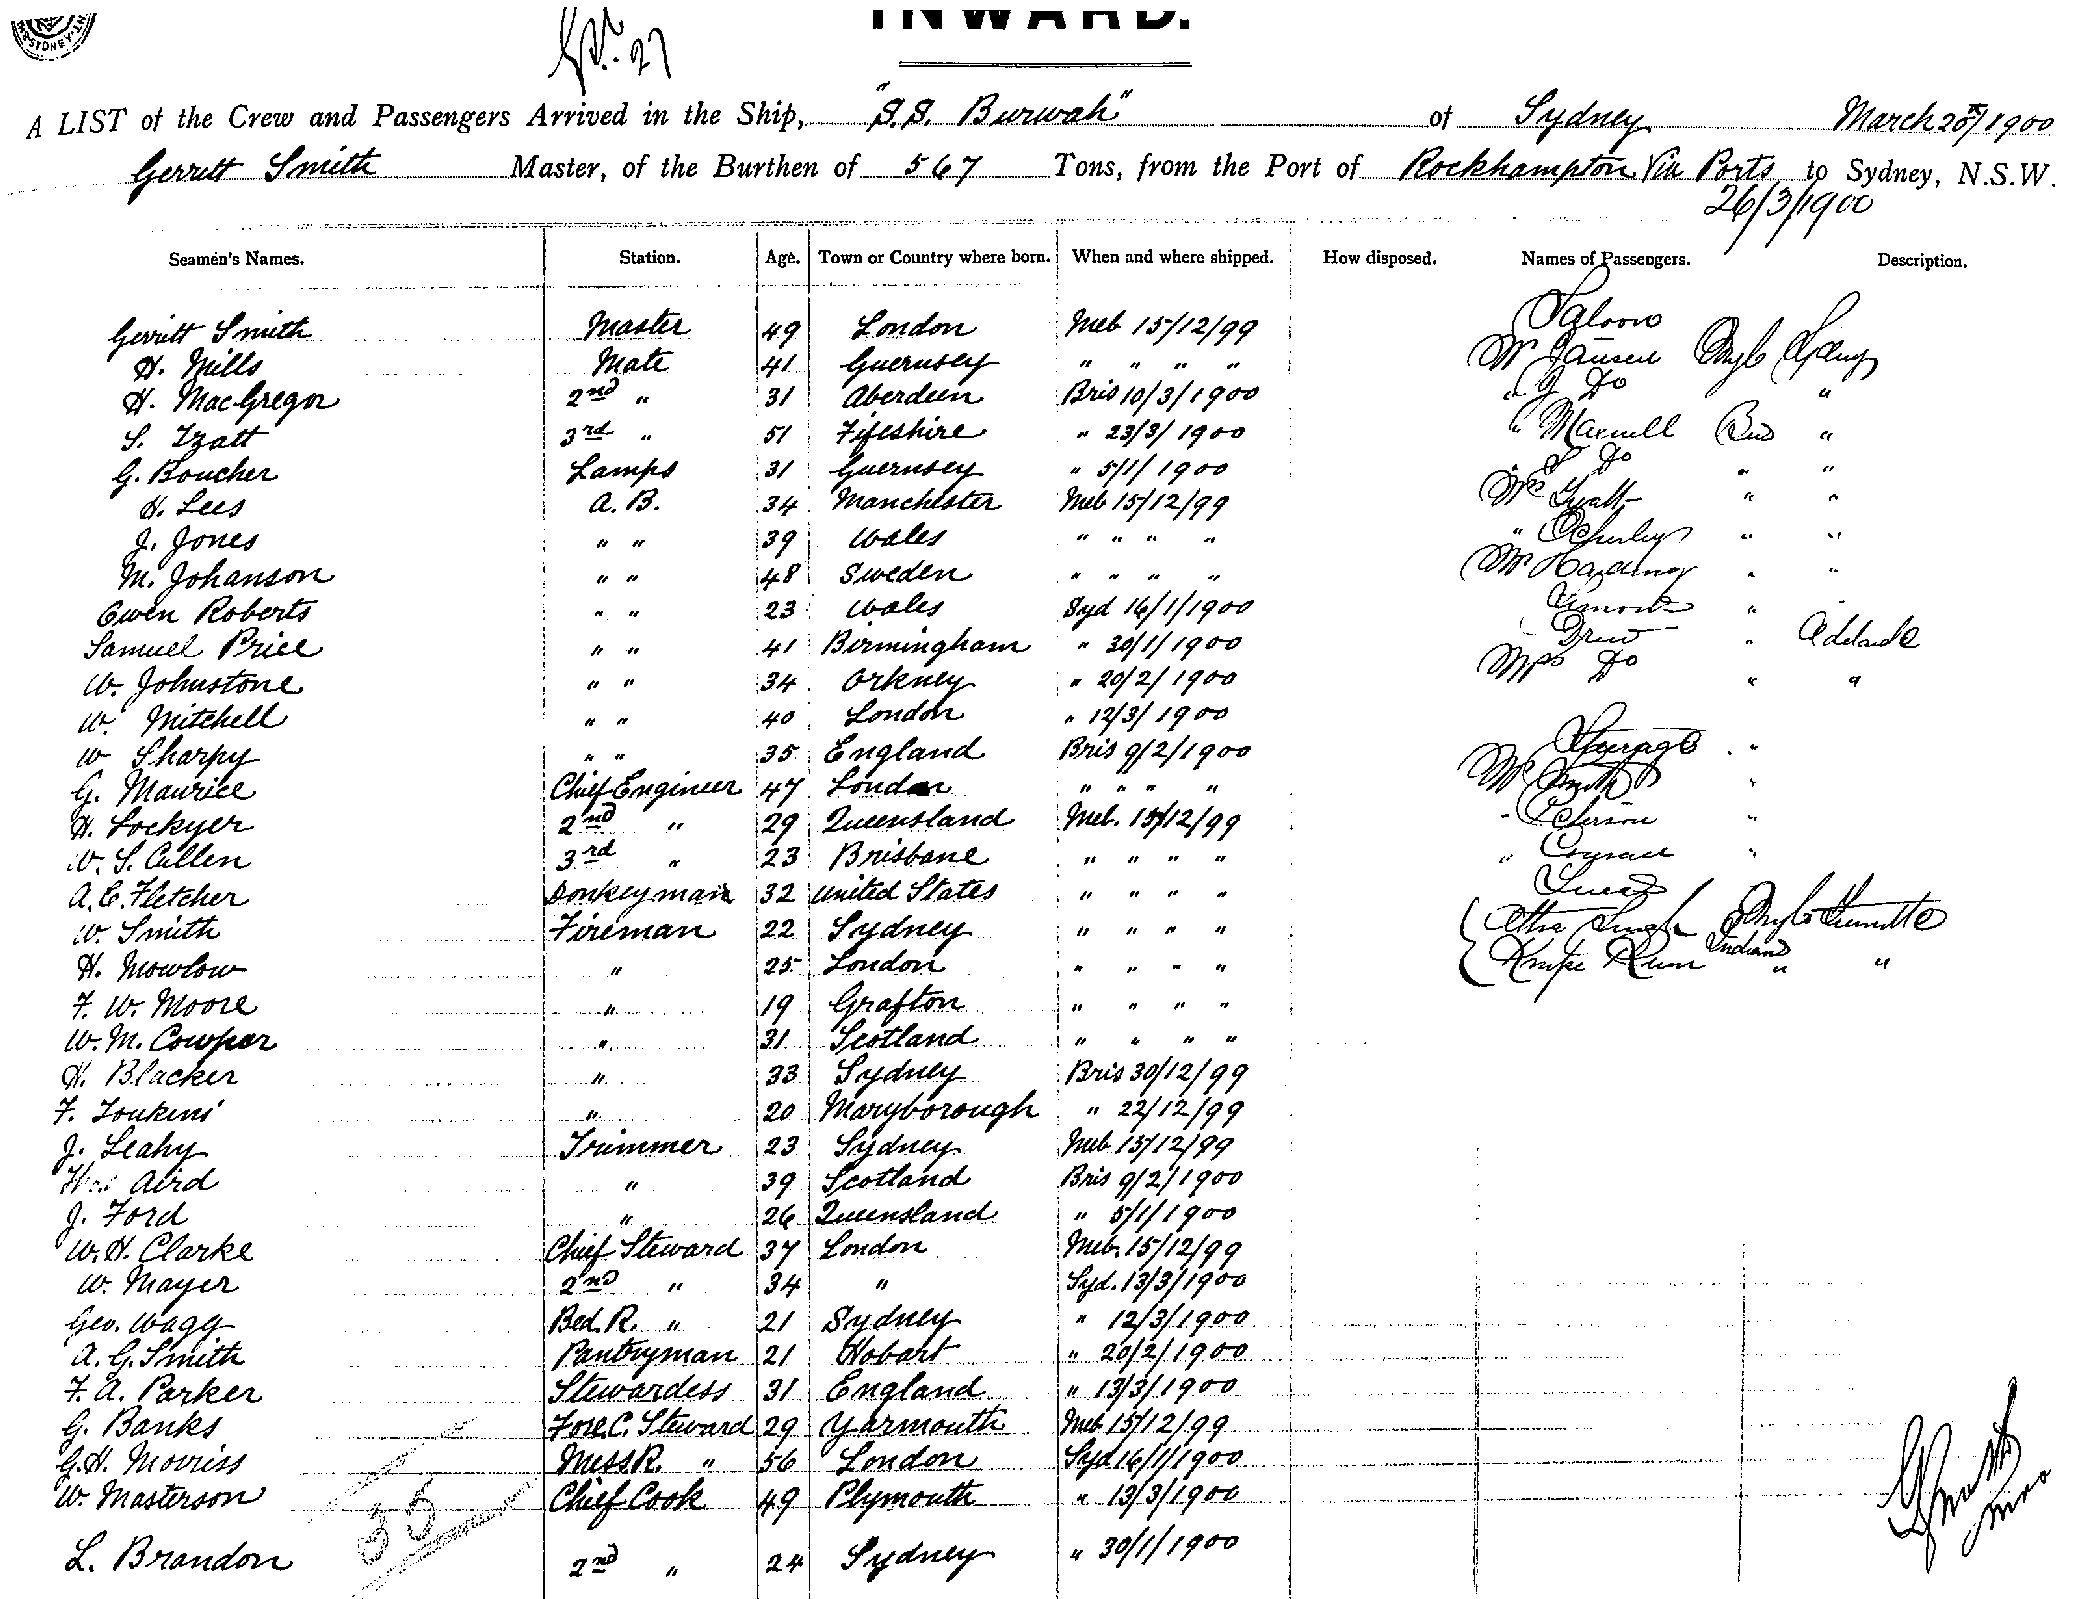 SYDNEY
INWARD.
A LIST of the Crew and Passengers Arrived in the Ship, "S.S. Burwah" of Sydney March 26th/1900
Gerritt Smith Master, of the Burthen of 567 Tons, from the Port of Rockhampton Via Ports to Sydney, N.S.W.
26/3/1900
Seamen's Names. Station. Age. Town or Country where born. When and where shipped. How disposed. Names of Passengers. Description.
Saloon
Gerritt Smith Master 49 London Melb 15/12/99
H. Mills Mate 41 Guernsey " " " " Mr Jansen
H. MacGregor 2nd " 31 Aberdeen Bris 10/3/1900 " J Do "
S. Izatt 3rd " 51 Fifeshire " 23/3/1900 " Maxwell "
G. Boucher Lamps 31 Guernsey " 5/1/1900 Do " "
H. Lees A.B. 34 Manchester Melb 15/12/99 " "
J. Jones " " 39 Wales " " " " " " "
M. Johanson " " 48 Sweden " " " " Mr Harding " "
Owen Roberts " " 23 Wales Syd 16/1/1900 "
Samuel Price " " 41 Birmingham " 30/1/1900 Drew " Adelaide
W. Johnstone " " 34 Orkney " 20/2/1900 Mrs Do " "
W. Mitchell " " 40 London " 12/3/1900
W Sharpy " " 35 England Bris 9/2/1900 Steerage "
G. Maurice Chief Engineer 47 London " " " " Mr Smith "
H. Lockyer 2nd " 29 Queensland Melb. 15/12/99 " Peterson "
W. S. Cullen 3rd " 23 Brisbane " " " " " "
A. E. Fletcher Donkeyman 32 United States " " " " Lucas
W. Smith Fireman 22 Sydney " " " " Singh
H. Mowlow " 25 London " " " " Ram Indians " "
F. W. Moore " 19 Grafton " " " "
W. M. Cowper " 31 Scotland " " " "
H. Blacker " 33 Sydney Bris 30/12/99
F. Tonkins " 20 Maryborough " 22/12/99
J. Leahy Trimmer 23 Sydney Melb 15/12/99
Aird " 39 Scotland Bris 9/2/1900
J. Ford " 26 Queensland " 5/1/1900
W. H. Clarke Chief Steward 37 London Melb. 15/12/99
W. Mayer 2nd " 34 " Syd. 13/3/1900
Geo. Wagg Bed. R. " 21 Sydney " 12/3/1900
A. G. Smith Pantryman 21 Hobart " 20/2/1900
F. A. Parker Stewardess 31 England " 13/3/1900
G. Banks Fore C. Steward 29 Yarmouth Melb 15/12/99
G. H. Morriss Mess R. " 56 London Syd 16/1/1900
W. Masterson Chief Cook 49 Plymouth " 13/3/1900
35
L. Brandon 2nd " 24 Sydney " 30/1/1900